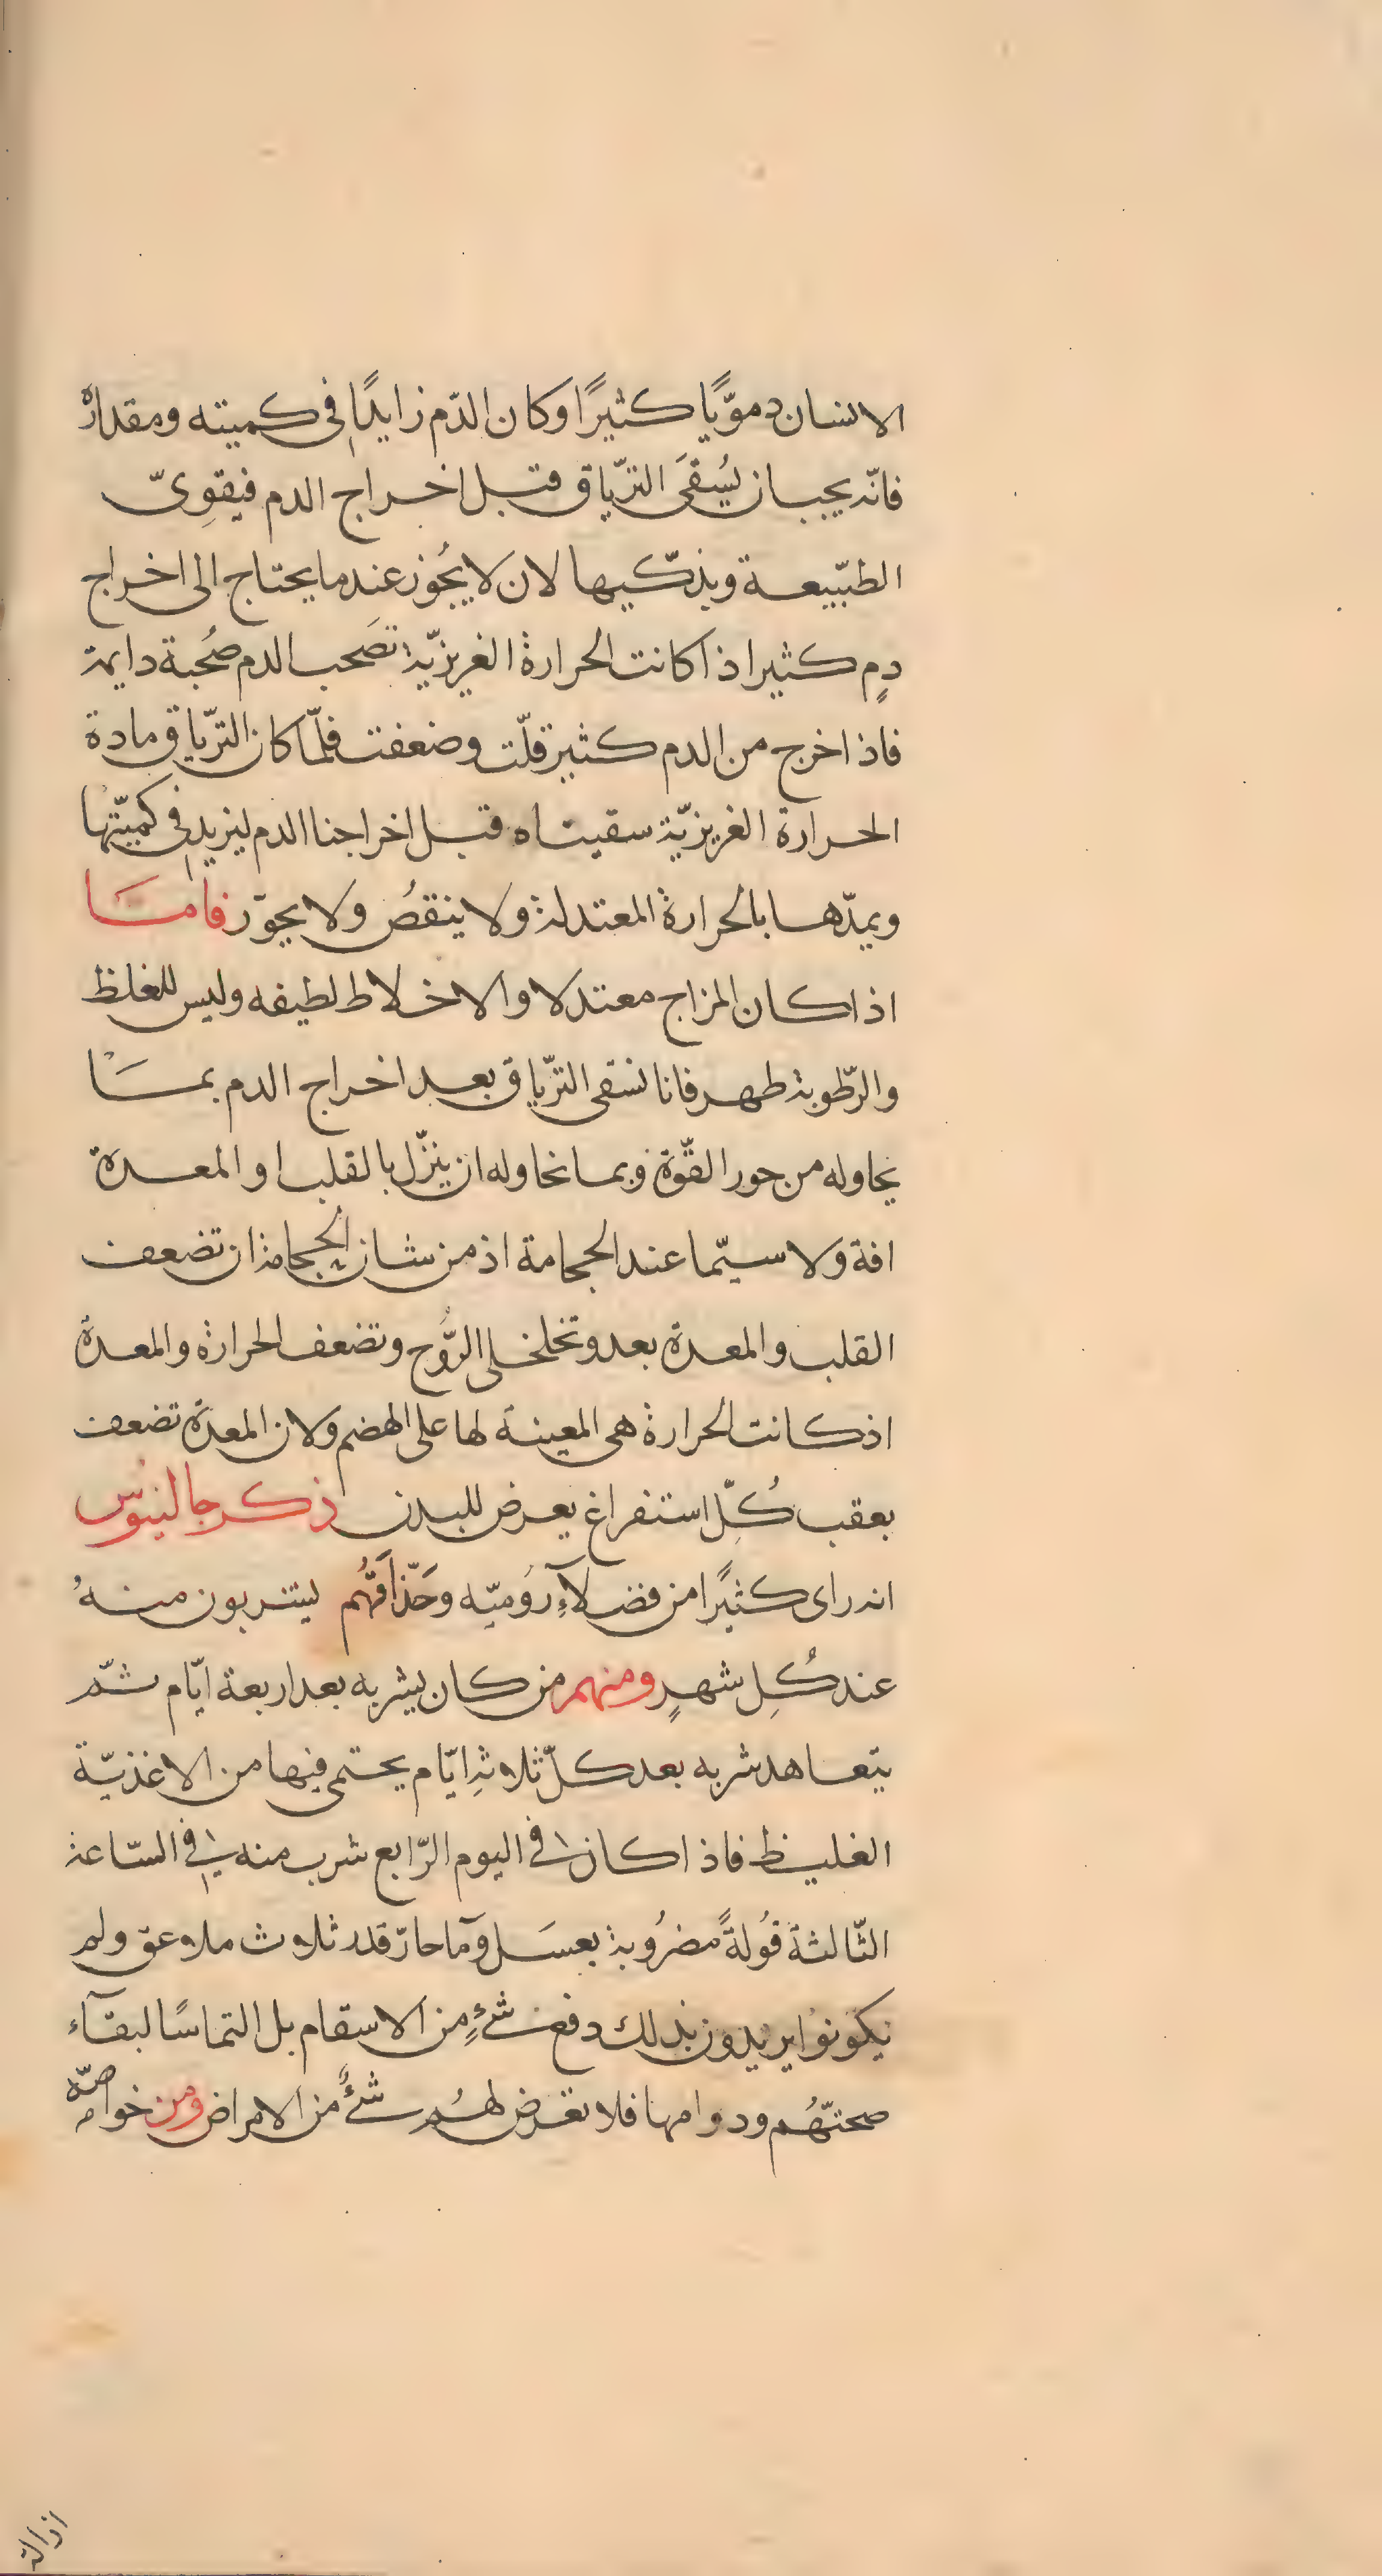 الانسان دمويًّا كثيرًا وكان الدّم زايدًا في كميته ومقداره
فانّه يجب ان يُسقَى الترّياق قبل اخراج الدم فيقوِىّ
الطبّيعة ويذكّيها لان لا يجُوز عندما يحتاج الى اخراج
دمٍ كثير اذا كانت الحرارة الغريزيّة تصَحب الدم صُحبة دايمة
فاذا خرج من الدم كثير قلّت وضعفت فلمّا كان الترّياق مادة
الحرارة الغريزيّة سقيناه قبل اخراجنا الدم ليزيد في كميّتها
ويمدّها بالحرارة المعتدلة ولا ينقصُ ولا يجوّر فامّا
اذا كان المزاج معتدلا والاخلاط لطيفه وليس للغلظ
والرّطوبة طهر فانا نسقى الترّياق بعد اخراج الدم بمَا
يحاوله من جور القّوة وبما نحاوله ان ينزّل بالقلب او المعدة
افة ولا سيّما عند الحجامة اذ من شان الحجامة ان تضعف
القلب والمعدة بعد وتخلخل الرُّوح وتضعف الحرارة والمعدة
اذ كانت الحرارة هى المعينة لها على الهضم ولان المعدة تضعف
بعقب كُلّ استفراغ يعرض للبدن ذكر جالينوُس
انه راى كثيًرا من فضلآءِ رُوميّه وحَذّاقهُم يشربون منهُ
عند كُلِ شهرٍ ومنهم من كان يشربه بعد اربعة ايّام ثمّ
يتعاهد شربه بعد كلّ ثلاثةِ ايّام يحتمى فيها من الاغذيّة
الغليظ فاذا كان في اليوم الرّابع شرب منه في السّاعة
الثّالثة فُولةً مضرُوبة بعسَل وَمآ حارّ قدر ثلاث ملاعق ولم
يكونوا يريدون بذلك دفع شىءٍ من الاسقام بل التماسًا لبقآء
صحتّهُم ودوامها فلا تعرض لهُم شىءٌ من الامراض ومن خواصّه
ازالة